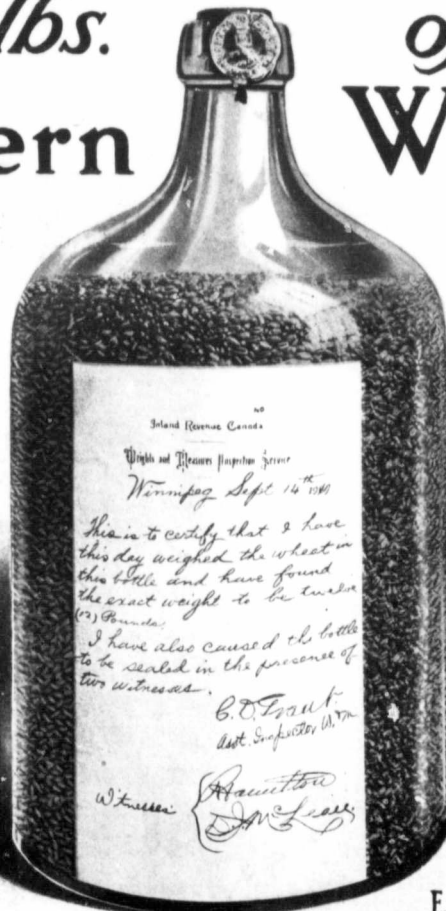 lbs. of
ern W
40
Inland Revenue Canada
Weights and Measures Inspection Service
Winnipeg Sept 14th
This is to certify that I have
this day weighed the wheat in
this bottle and have found
the exact weight to be twelve
(12) Pounds.
I have also caused the bottle
to be sealed in the presence of
two witnesses.
C. D.
Asst. Inspector W. &
Witnesses Hamilton
F